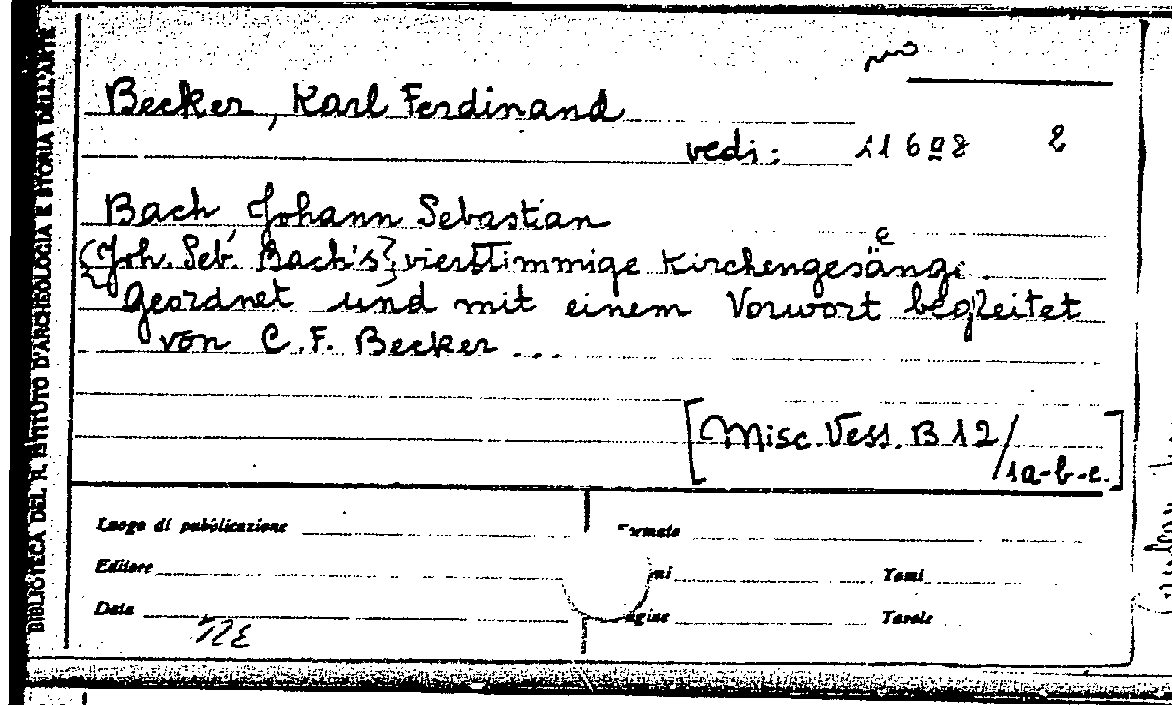 BIBLIOTECA DEL R. ISTITUTO D'ARCHEOLOGIA E STORIA DELL'ARTE
Becker, Karl Ferdinand
vedi: 11608 2
Bach Johann Sebastian
{Joh. Seb. Bach's} vierstimmige Kirchengesänge
Geordnet und mit einem Vorwort begleitet
von C. F. Becker ...
[Misc. Vess. B 12/1a-b-c.]
Luogo di pubblicazione Formato
Editore Tomi
Data Tavole